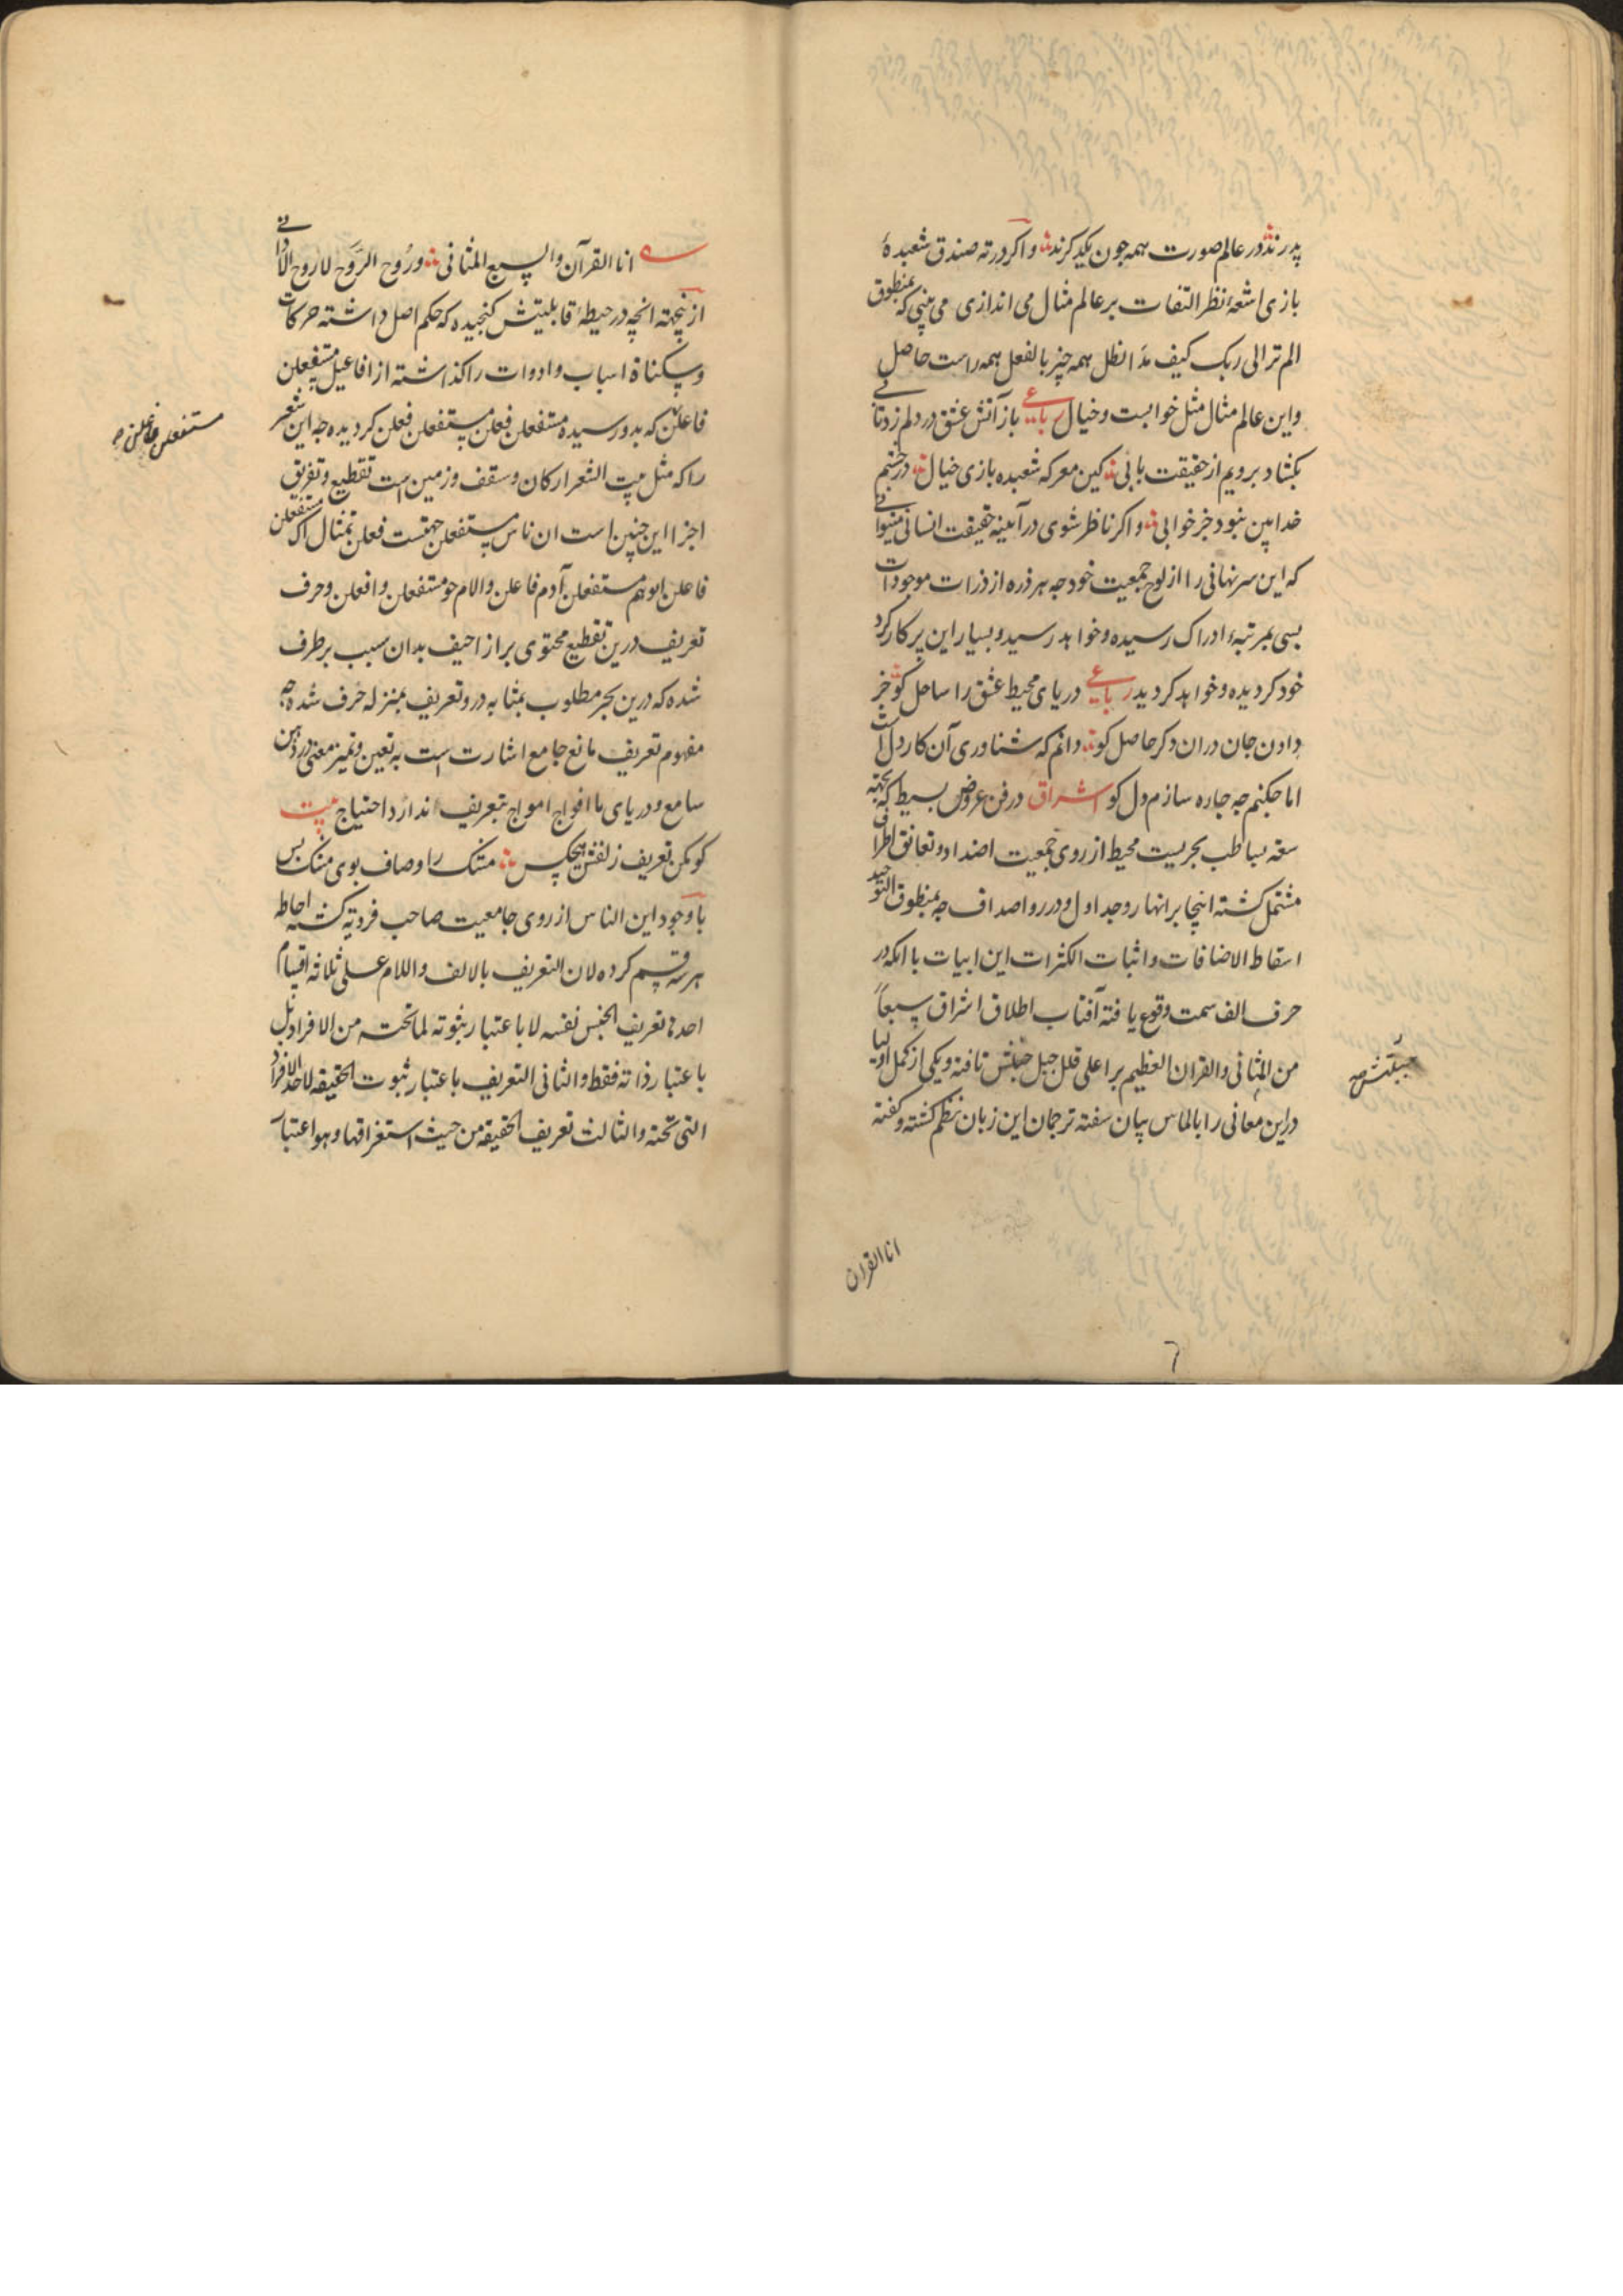 پدرند در عالم صورت همه جون یکدکرند واکر در ته صندق شعبدهٔ
بازی اشعهٔ نظر التفات بر عالم مثال می اندازی می بینی که بمنطوق
الم تر الی ربک کیف مدّ الظل همه چیز بالفعل همه راست حاصل
واین عالم مثال مثل خوابست وخیال رباعی باز آتش عشق در دلم زد تابی
بکشاد برویم از حقیقت بابی کین معرکه شعبده بازی خیال در چشم
خدا بین نبود جز خوابی واکر ناظر شوی در آیینه حقیقت انسانی میتوانی
که این سر نهانی را از لوح جمعیت خود جه هر ذره از ذرات موجودات
بسی بمرتبهٔ ادراک رسیده وخواهد رسید وبسیار این پرکار کرد
خود کردیده وخواهد کردید رباعی دریای محیط عشق را ساحل کو جز
دادن جان دران دکر حاصل کو دانم که شناوری آن کار دل است
اما جکنم جه جاره سازم دل کو اشراق در فن عروض بسیط که بجهته
سعه بساطب بحریست محیط از روی جمعیت اضداد وتعانق اطراف
مشتمل کشته اینجا بر انهار وجداول ودرر واصداف جه بمنطوق التوحید
اسقاط الاضافات واثبات الکثرات این ابیات با انکه در
حرف الف سمت وقوع یافته آفتاب اطلاق اشراق سبعاً
من المثانی والقران العظیم بر اعلی قلل جبل جبلتش تافته ویکی از کمل اولیا
در این معانی را بالماس بیان سفته ترجمان این زبان نظم کشته وکفته
جبلتش صح
انا القران
٦
انا القرآن والسبع المثانی وروح الرّوح لا روح الاوانی
ازینجهته انچه در حیطهٔ قابلیتش کنجیده که حکم اصل داشته حرکات
وسکناة اسباب وادوات را کذاشته از افاعیل مستفعلن
فاعلن که بدو رسیده مستفعلن فعلن مستفعلن فعلن کردیده جه این شعر
را که مثل بیت الشعر ارکان وسقف وزمین است تقطیع وتفریق
اجزا این جنین است ان ناس مستفعلن جهتست فعلن تمثال اک مستفعلن
فاعلن ابوهم مستفعلن آدم فاعلن والام حو مستفعلن وا فعلن وحرف
تعریف درین تقطیع محتوی بر ازاحیف بدان سبب بر طرف
شده که درین بحر مطلوب بمثابه در وتعریف بمنزله خرف شده جه
مفهوم تعریف مانع جامع اشارت است به تعین وتمیز معنی در ذهن
سامع ودریای با افواج امواج بتعریف ندارد احتیاج بیت
کو مکن تعریف زلفش هیچکس مشک را وصاف بوی مشک بس
با وجود این الناس از روی جامعیت صاحب فردیة کشته احاطه
هر سه قسم کرده لان التعریف بالالف واللام علی ثلاثه اقسام
احدها تعریف الجنس نفسه لا باعتبار ثبوته لما تحته من الافراد بل
باعتبار ذاته فقط والثانی التعریف باعتبار ثبوت الحقیقه لاحد الافراد
التی تحته والثالث تعریف الحقیقه من حیث استغراقها وهو اعتبار
مستفعلن فاعلن صح